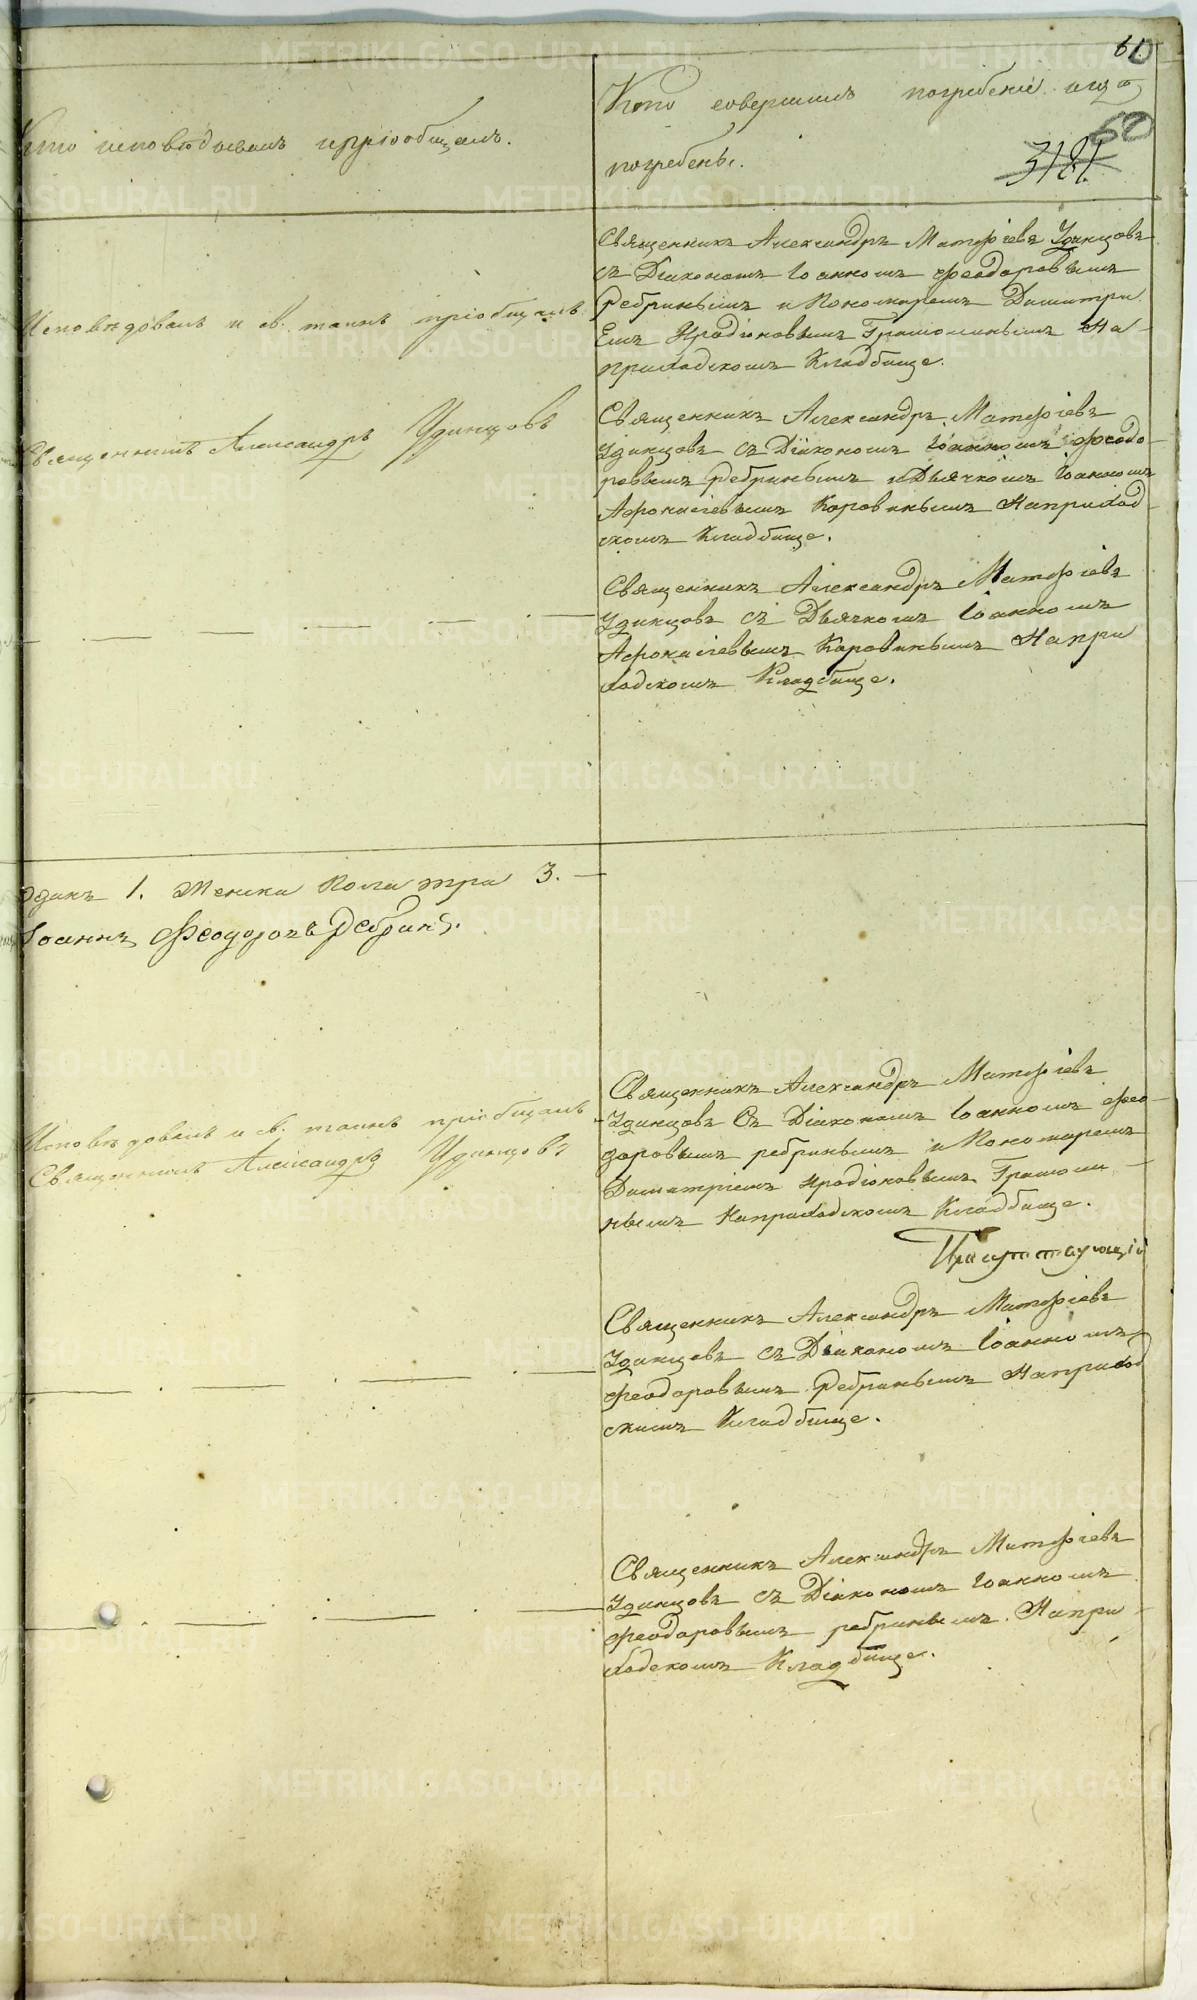 60
Кто исповѣдывалъ и пріобщалъ.
Кто совершилъ погребеніе и гдѣ
погребены.
60
3181
Исповѣдовалъ и св. таинъ пріобщалъ
Священникъ Александръ Удинцовъ
Священникъ Александръ Матфіевъ Удинцовъ
съ Діакономъ Іоанномъ Феодоровымъ
Ребринымъ и Пономаремъ Димитри
Емъ Иродіоновымъ Грамолинымъ На-
приходскомъ Кладбище.
Священникъ Александръ Матфіевъ
Удинцовъ съ Діакономъ Іоанномъ Феодо-
ровымъ Ребринымъ и Дьячкомъ Іоанномъ
Афонасіевымъ Коровинымъ На приход-
скомъ Кладбище.
Священникъ Александръ Матфіевъ
Удинцовъ съ Дьячкомъ Іоанномъ
Афонасіевымъ Коровинымъ На при
ходскомъ Кладбище.
одинъ 1. Женска Пола три 3.
Іоаннъ Феодоровъ Ребринъ.
Исповѣдовалъ и св. таинъ пріобщалъ
Священникъ Александръ Удинцовъ
Священникъ Александръ Матфіевъ
Удинцовъ Съ Діакономъ Іоанномъ Фео-
доровымъ ребринымъ и Пономаремъ
Димитріемъ Иродіоновымъ Грамоли-
нымъ На приходскомъ Кладбище.
Священникъ Александръ Матфіевъ
Удинцовъ съ Діакономъ Іоанномъ
Феодоровымъ Ребринымъ На приход
скомъ Кладбище.
Священникъ Александръ Матфіевъ
Удинцовъ съ Діакономъ Іоанномъ
Феодоровымъ ребринымъ На при-
ходскомъ Кладбище.
METRIKI.GASO-URAL.RU